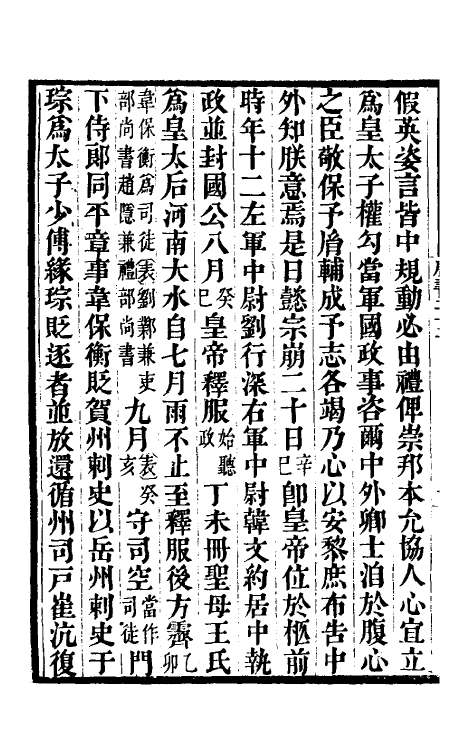 假英姿言皆中規動必由禮俾崇邦本允協人心宜立
爲皇太子權勾當軍國政事咨爾中外卿士洎於腹心
之臣敬保予胤輔成予志各竭乃心以安黎庶布告中
外知朕意焉是日懿宗崩二十日辛巳卽皇帝位於柩前
時年十二左軍中尉劉行深右軍中尉韓文約居中執
政並封國公八月癸巳皇帝釋服始聽政丁未冊聖母王氏
爲皇太后河南大水自七月雨不止至釋服後方霽乙卯
韋保衡爲司徒表劉鄴兼吏部尚書趙隱兼禮部尚書九月表癸亥守司空當作司徒門
下侍郞同平章事韋保衡貶賀州刺史以岳州刺史于
琮爲太子少傅緣琮貶逐者並放還循州司戸崔沆復